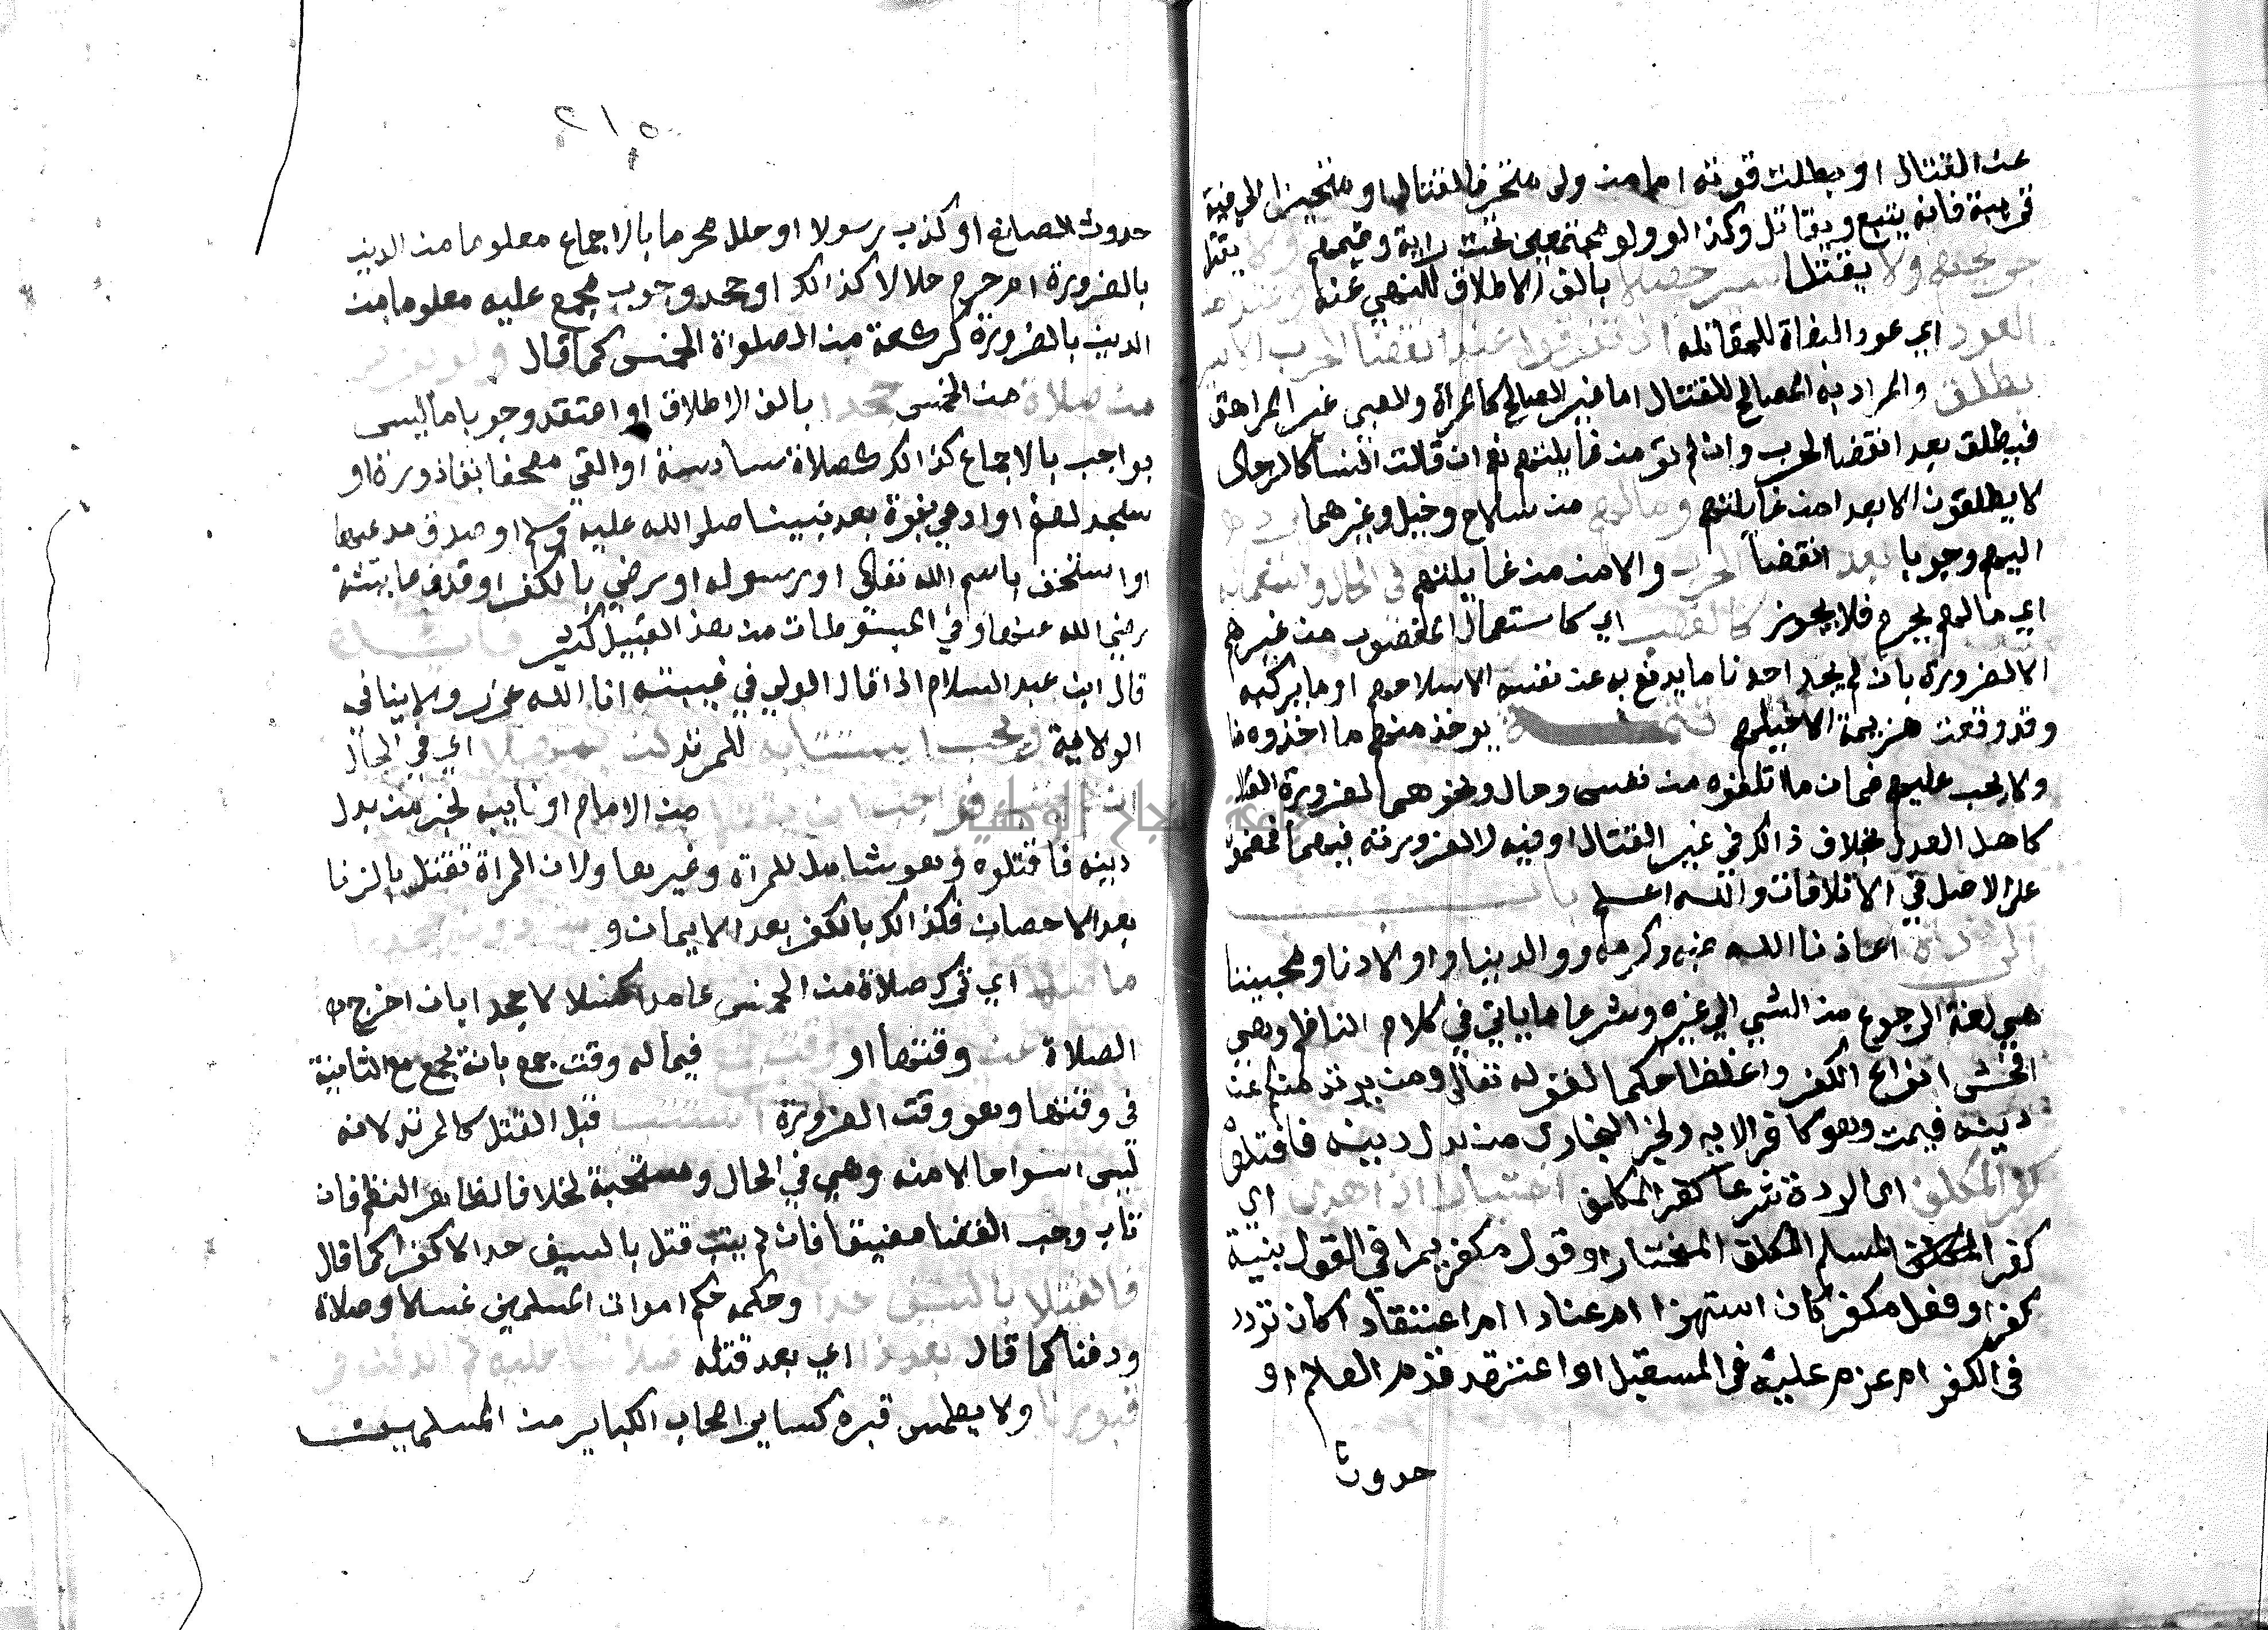 عن القتال او بطلت قوته اما من ولى متحرفا لقتال او متحيزا الى فية
قريبة فانه يتبع ويقاتل وكذا لو ولو مجتمعين تحت راية زعيمهم ولا يقتل
جريحهم ولا يقتل اسير حصلا بالف الاطلاق للنهي عنه
العود اي عود البغاة للمقاتله اذ تفرقوا عند انقضا الحرب الاسير
يطلق والمراد به الصالح للقتال اما غير الصالح كالمراة والصبي غير المراهق
فيطلق بعد انقضا الحرب وان لم نومن غايلتهم نعم ان قاتلت النسا كالرجال
لا يطلقون الا بعد امن غايلتهم ومالهم من سلاح وخيل وغيرهما يرد
اليهم وجوبا بعد انقضا الحرب والامن من غايلتهم في الحال واستعماله
اي مالهم يحرم فلا يجوز كالغصب اي كاستعمال المغصوب من غيرهم
الا لضرورة بان لم يجد احدنا ما يدفع به عن نفسه الا سلاحهم او ما يركبه
وقد وقعت هزيمة الا خيلهم تتمة يوخذ منهم ما اخذوه منا
ولا يجب عليهم ضمان ما اتلفوه من نفس ومال ونحوهما لضرورة القتال
كاهل العدل بخلاف ذالك في غير القتال او فيه لا لضرورته فيهما فمضمون
على الاصل في الاتلافات والله اعلم باب
الردة اعاذنا الله بمنه وكرمه ووالدينا واولادنا ومحبيننا
هي لغة الرجوع من الشي الى غيره وشرعا ما ياتي في كلام الناظم وهي
افحش انواع الكفر واغلظها حكما لقوله تعالى ومن يرتدد منكم عن
دينه فيمت وهو كافر الاية ولخبر البخاري من بدل دينه فاقتلوه
كفر المكلف اي الردة شرعا كفر المكلف اختيارا اي
كفر المسلم المكلف المختار او قول مكفر يرا في القول بنية
كفر او فعل مكفر كان استهزا ام عنادا ام اعتقادا كان تردد
في الكفر ام عزم عليه في المستقبل او اعتقد قدم العالم او
حدوث
حدوث الصانع او كذب رسولا او حلل محرما بالاجماع معلوما من الدين
بالضرورة ام حرم حلالا كذالك او جحد وجوب مجمع عليه معلوما من
الدين بالضرورة كركعة من الصلواة الخمس كما قال ولو بفرض
من صلاة من الخمس جحدا بالف الاطلاق او اعتقد وجوب ما ليس
بواجب بالاجماع كذالك كصلاة سادسة او القي مصحفا بقاذورة او
سجد لصنم او ادعي نبوة بعد نبينا صلى الله عليه وسلم او صدق مدعيها
او استخف باسم الله تعالى او رسوله او رضي بالكفر او قذف عايشة
رضي الله عنها وفي المبسوطات من هذا القبيل كثير فايدة
قال ابن عبد السلام اذا قال الولي في غيبته انا الله عزر ولا ينافي
الولاية وتجب استتابه للمرتد لن يمهلا اي في الحال
ان لم يتب فواجب ان يقتلا من الامام او نايبه لخبر من بدل
دينه فاقتلوه وهو شامل للمراة وغيرها ولان المراة تقتل بالزنا
بعد الاحصان فكذالك بالكفر بعد الايمان و من دون جحد
ما صلى اي ترك صلاة من الخمس عامدا كسلا لا جحدا بان اخرج
الصلاة عن وقتها او فيما له وقت جمع بان تجمع مع الثانية
في وقتها وهو وقت الضرورة استتبا قبل القتل كالمرتد لانه
ليس اسوا حالا منه وهي في الحال ومستحبة خلافا لظاهر النظم فان
تاب وجب القضا مضيقا فان لم يتب قتل بالسيف حدا لا كفرا كما قال
فالقتلا بالسيف حدا وحكمه حكم اموات المسلمين غسلا وصلاة
ودفنا كما قال بعد ذا اي بعد قتله صلاتنا عليه ثم الدفن في
قبورنا ولا يطمس قبره كساير اصحاب الكباير من المسلمين